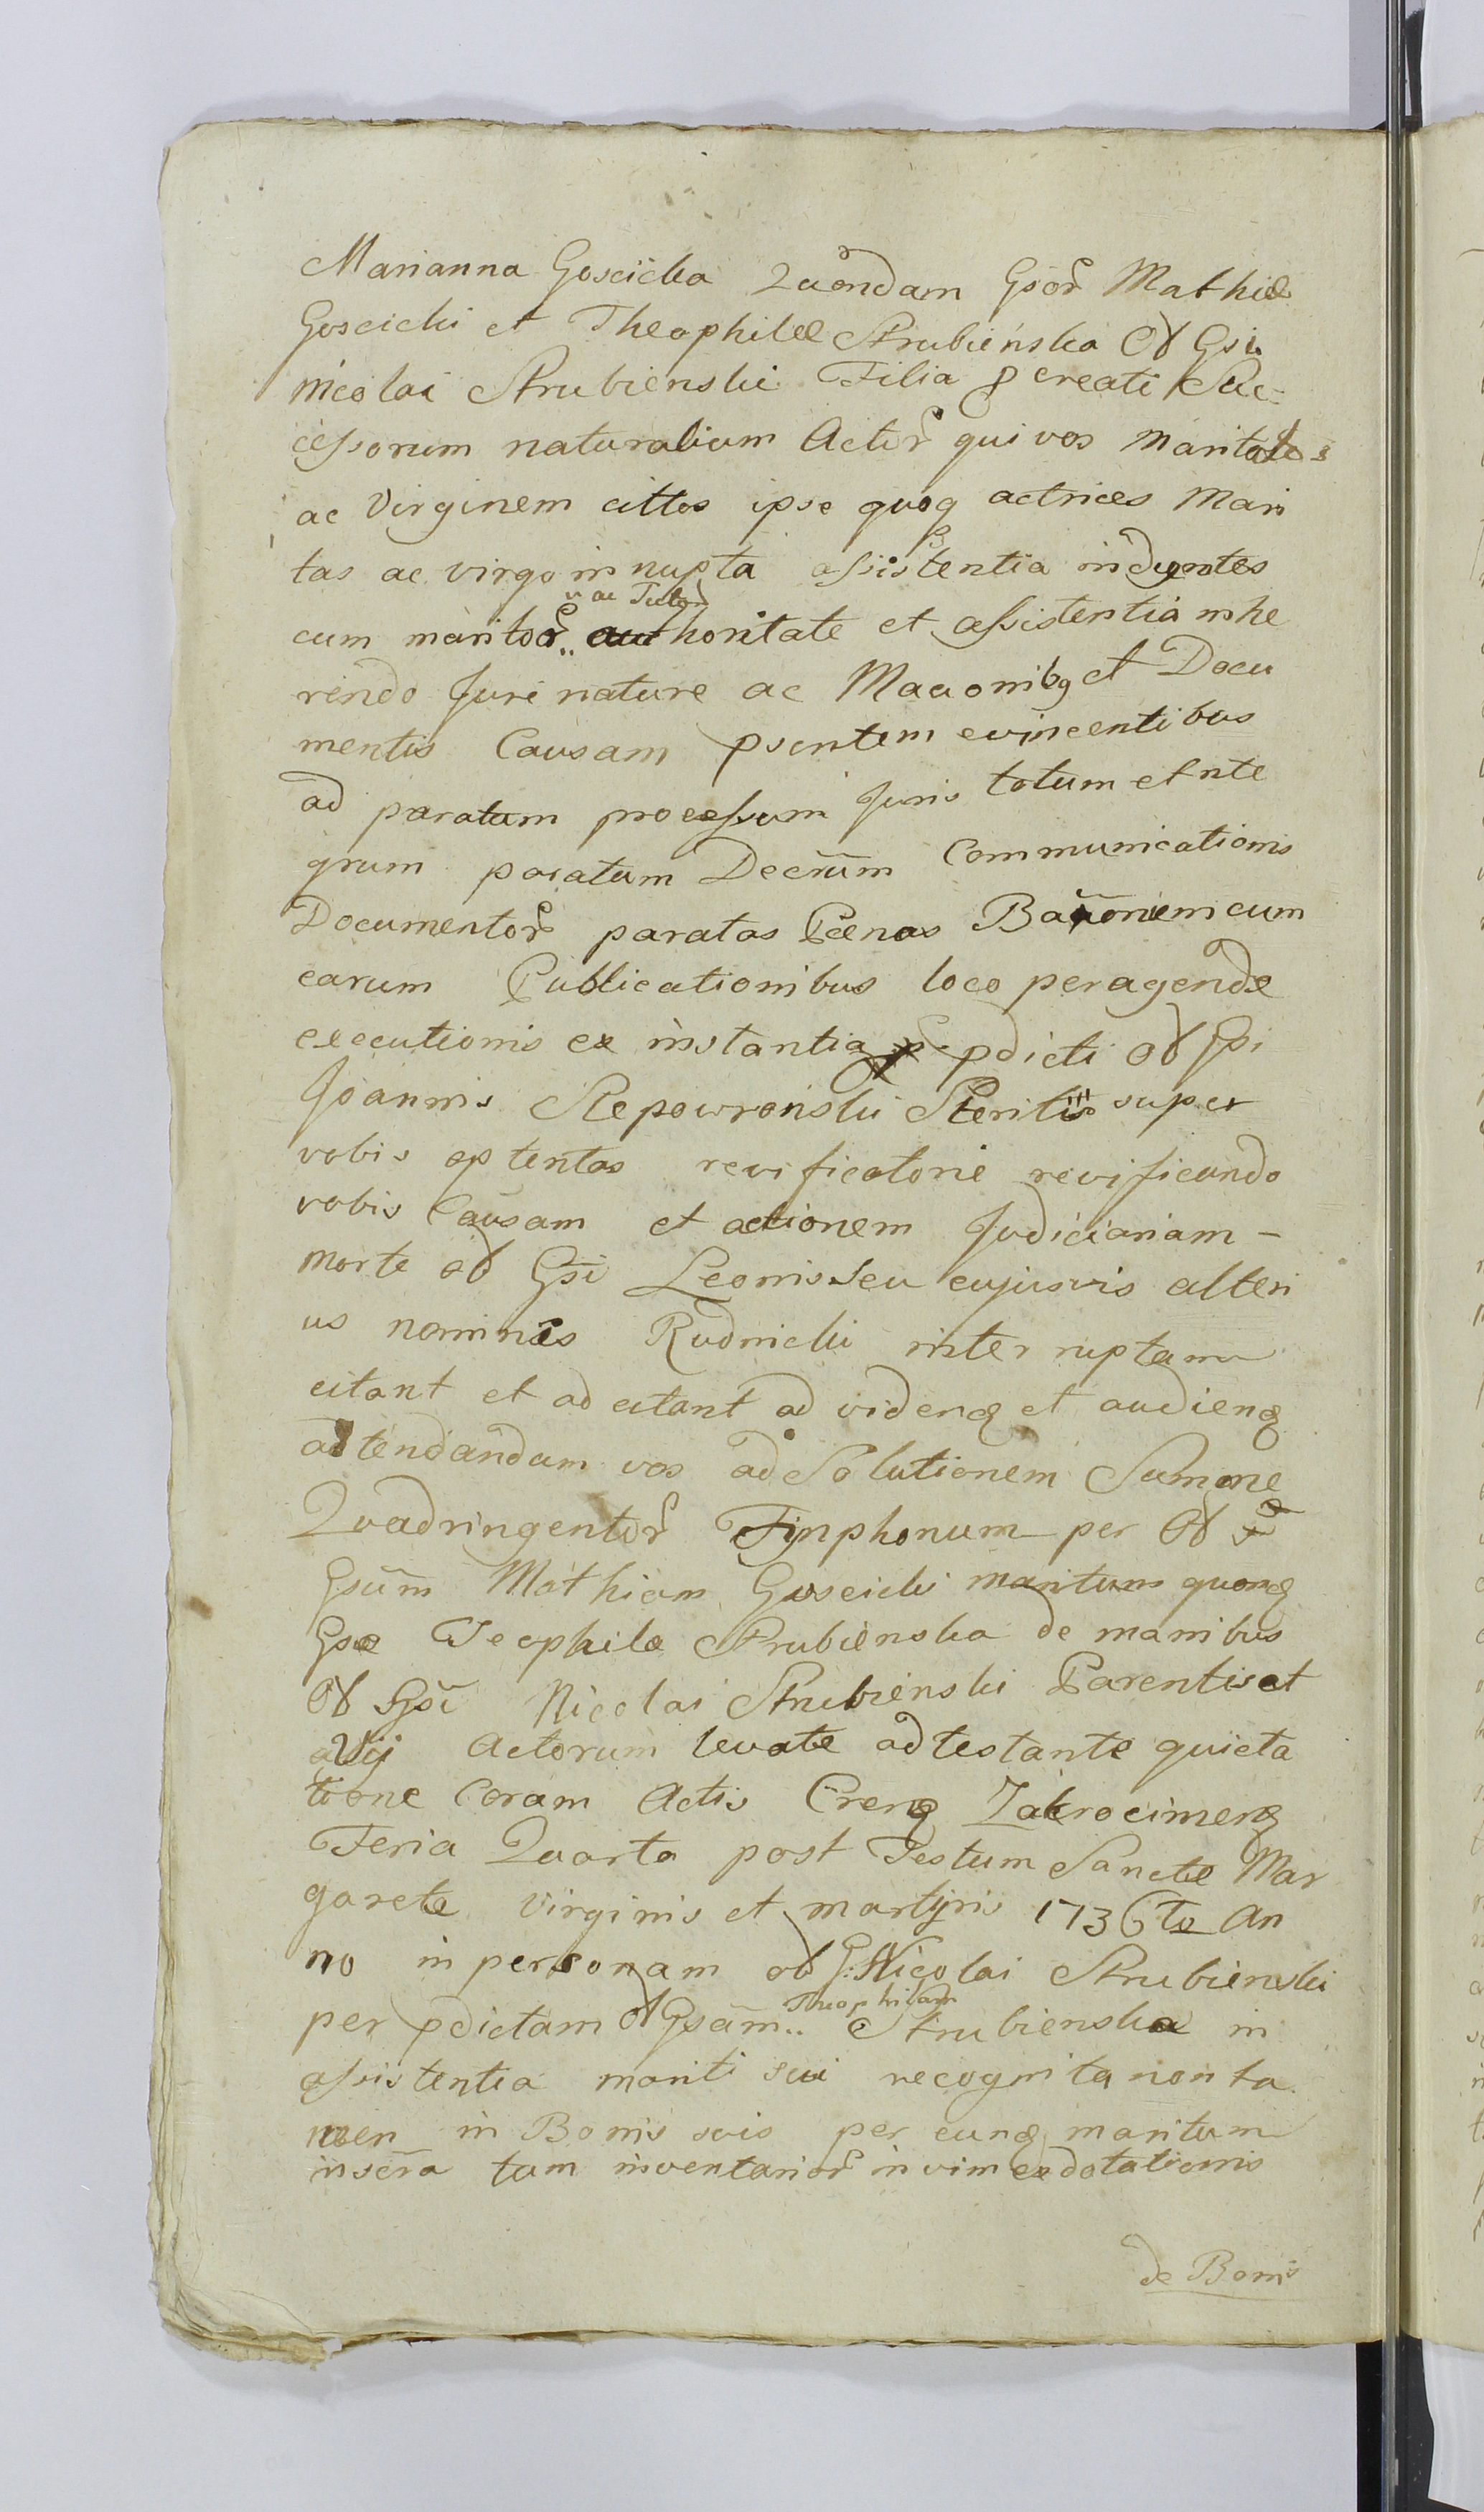 Marianna Goscicka Quondam Gsor Mathiæ
Goscicki et Theophilæ Strubieńska Ol Gsi
Nicolai Strubienski Filia p creati Suc-
cessorum naturalium Actor qui vos maritatas
ac Virginem cittos ipse quoq actrices Mari
tas ac virgo innupta assistentia indigentes
ac Tutor
cum maritor authoritate et assistentia inhe
rendo Juri nature ac Maonibq et Docu
mentis Causam psentem evincentibus
ad paratum processum Juris totum et nte
grum paratum Decrum Communicationis
Documentor paratas Pænas Banonem cum
earum Publicationibus loco peragendæ
executionis ex instantia pdicti ol Gsi
Joannis Slepowroński Steriliss super
vobis optentas revificatorie revificando
vobis Causam et actionem Judiciariam -
morte ol Gsi Leonis seu cujusvis alteri
us nominis Rudnicki inter ruptam
citant et ad citant ad videnq et audienq
attendandum vos ad Solutionem Summe
Quadringentor Tynphonum per Ol
Gsum Mathiam Goscicki maritum quonq
Gsæ Teophilæ Strubienska de manibus
Ol Gsi Nicolai Strubienski Parentis et
avij Actorum levate adtestante quieta
tione Coram Actis Crenq Zakrocimenq
Feria Quarta post Festum Sanctæ Mar
garetæ Virginis et martyris 1736to An
no in personam ol G: Nicolai Strubienski
Theophilam
per pdictam ol Gsam Strubienska in
assistentia mariti sui recognita non ta
men in Bonis suis per eunq maritum
insera tum inventarior in vim exdotationis
de Bonis